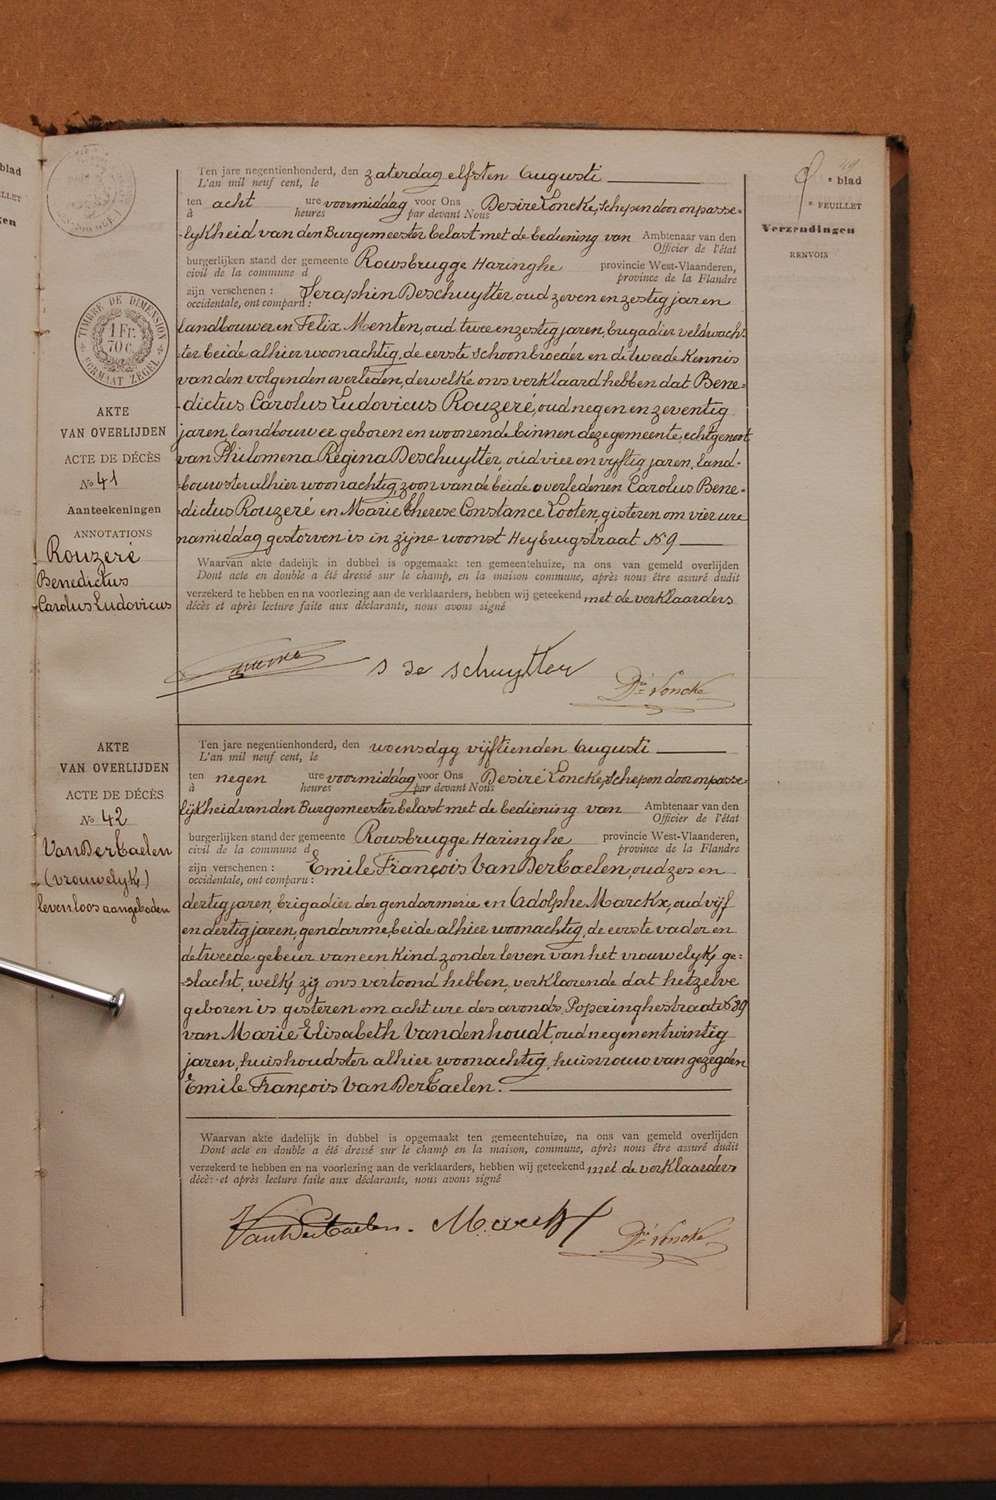 blad
Verzendingen
FEUILLET
RENVOIS
TIMBRE DE DIMENSION
1 Fr.
70 c.
FORMAAT ZEGEL
AKTE
VAN OVERLIJDEN
ACTE DE DÉCÈS
No 41
Aanteekeningen
ANNOTATIONS
Rouzeré
Benedictus
Carolus Ludovicus
Ten jare negentienhonderd, den zaterdag elfsten Augusti
L'an mil neuf cent, le
ten acht ure voormiddag voor Ons Desiré Loncke, schepen door onpasse-
à heures par devant Nous
lykheid van den Burgemeester belast met de bediening van Ambtenaar van den
Officier de l'état
burgerlijken stand der gemeente Rousbrugge Haringhe provincie West-Vlaanderen,
civil de la commune d province de la Flandre
zijn verschenen : Seraphin Deschuytter oud zeven en zestig jaren
occidentale, ont comparu :
landbouwer en Felix Menten, oud twee en zestig jaren, brigadier veldwach-
ter beide alhier woonachtig, de eerste schoonbroeder en de tweede kennis
van den volgenden overleden, dewelke ons verklaard hebben dat Bene-
dictus Carolus Ludovicus Rouzeré, oud negen en zeventig
jaren, landbouwer geboren en woonende binnen deze gemeente, echtgenoot
van Philomena Regina Deschuytter, oud vier en vyftig jaren, land-
bouwster alhier woonachtig, zoon van de beide overledenen Carolus Bene-
dictus Rouzeré en Marie Therese Constance Looten, gisteren om vier ure
namiddag gestorven is in zijne woonst Heybrugstraat No 9
Waarvan akte dadelijk in dubbel is opgemaakt ten gemeentehuize, na ons van gemeld overlijden
Dont acte en double a été dressé sur le champ, en la maison commune, après nous être assuré dudit
verzekerd te hebben en na voorlezing aan de verklaarders, hebben wij geteekend met de verklaarders
décès et après lecture faite aux déclarants, nous avons signé
S De Schuytter
Dré Loncke
AKTE
VAN OVERLIJDEN
ACTE DE DÉCÈS
No 42
VanDerTaelen
(vrouwelyk)
levenloos aangeboden
Ten jare negentienhonderd, den woensdag vijftienden Augusti
L'an mil neuf cent, le
ten negen ure voormiddag voor Ons Desiré Loncke, schepen door onpasse-
à heures par devant Nous
lykheid van den Burgemeester belast met de bediening van Ambtenaar van den
Officier de l'état
burgerlijken stand der gemeente Rousbrugge Haringhe provincie West-Vlaanderen,
civil de la commune d province de la Flandre
zijn verschenen : Emile François VanDerTaelen, oud zes en
occidentale, ont comparu :
dertig jaren, brigadier der gendarmerie en Adolphe Marckx, oud vijf
en dertig jaren, gendarme, beide alhier woonachtig, de eerste vader en
de tweede gebeur van een kind zonder leven van het vrouwelyk ge-
slacht, welk zij ons vertoond hebben, verklarende dat hetzelve
geboren is gisteren om acht ure des avonds, Poperinghestraat No 39
van Marie Elisabeth Vandenhoudt, oud negen en twintig
jaren, huishoudster alhier woonachtig, huisvrouw van gezegden
Emile François VanDerTaelen.
Waarvan akte dadelijk in dubbel is opgemaakt ten gemeentehuize, na ons van gemeld overlijden
Dont acte en double a été dressé sur le champ, en la maison, commune, après nous être assuré dudit
verzekerd te hebben en na voorlezing aan de verklaarders, hebben wij geteekend met de verklaarders
décès et après lecture faite aux déclarants, nous avons signé
VanDerTaelen. Marckx Dré Loncke